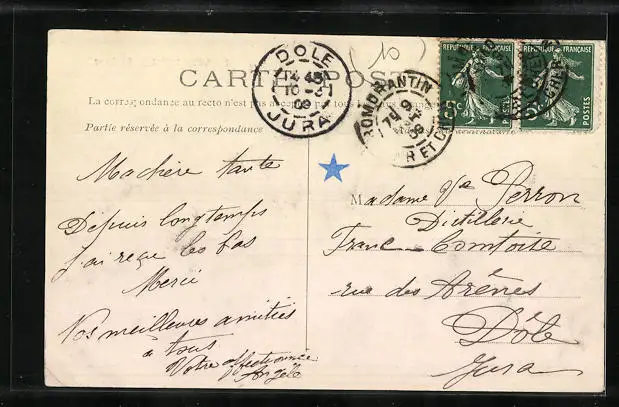 CARTE POSTALE
La correspondance au recto n'est pas acceptée par tous les pays étrangers
Partie réservée à la correspondance
Ma chère tante
Depuis longtemps
j'ai reçue les bas
Merci
Vos meilleures amitiés
à tous
Votre affectionnée
Angèle
DOLE
JURA
(10)
ROMORANTIN
LOIR ET CHER
REPUBLIQUE FRANÇAISE
POSTES
REPUBLIQUE FRANÇAISE
POSTES
Madame Vve Perron
Distillerie
Franc-Comtoise
rue des Arènes
Dôle
Jura